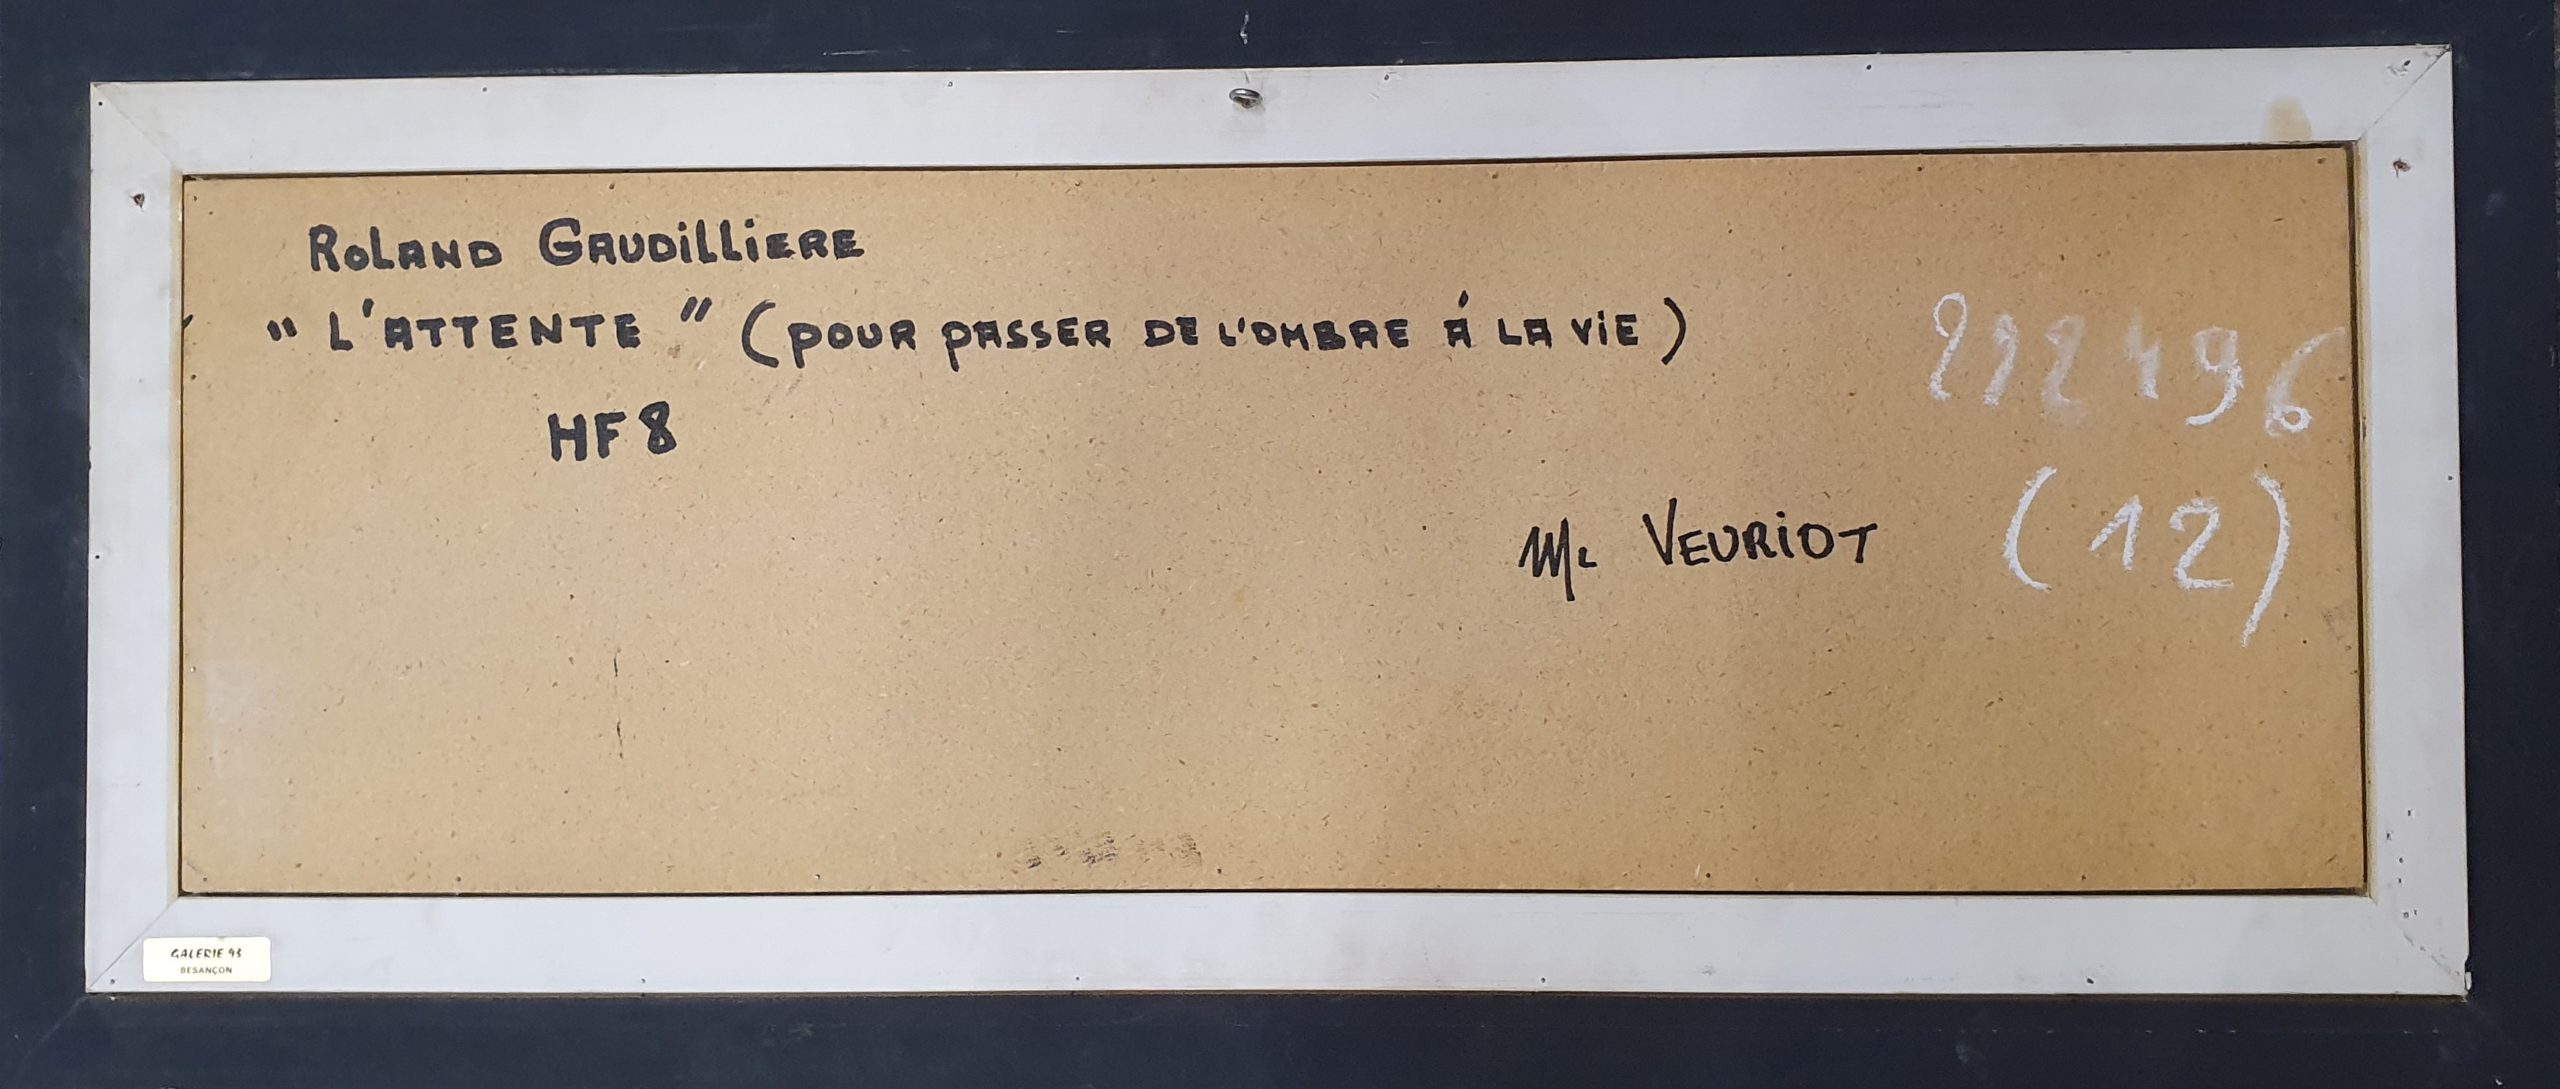 ROLAND GAUDILLIERE
" L'ATTENTE " (POUR PASSER DE L'OMBRE Á LA ViE)
HF 8
212496
(12)
VEURIOT
GALERIE 93
BESANÇON